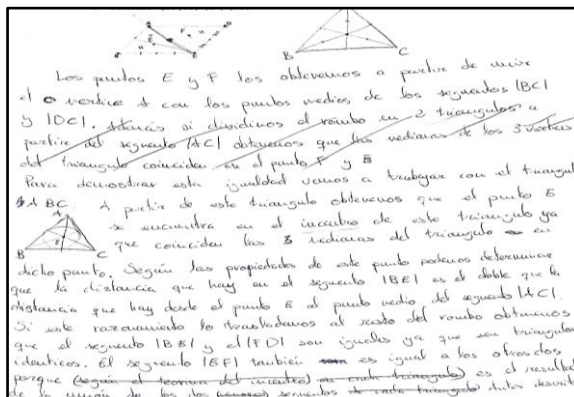 B C
Los puntos E y F los obtenemos a partir de unir
el vertice A con los puntos medios de los segmentos |BC|
y |DC|. Además si dividimos el rombo en 2 triangulos a
partir del segmento |AC| obtenemos que las medianas de los 3 vertices
del triangulo coinciden en el punto F y E
Para demostrar esta igualdad vamos a trabajar con el triangulo
ABC. A partir de este triangulo obtenemos que el punto E
A
se encuentra en el incentro de este triangulo ya
B C
que coinciden las 3 medianas del triangulo en
dicho punto. Según las propiedades de este punto podemos determinar
que la distancia que hay en el segmento |BE| es el doble que la
distancia que hay desde el punto E al punto medio del segmento |AC|.
Si este razonamiento lo trasladamos al resto del rombo obtenemos
que el segmento |BE| y el |FD| son iguales ya que son triangulos
identicos. El segmento |EF| tambien es igual a los otros dos
porque (según el teorema del incentro) en cada triangulo) es el resultado
de la union de los dos segmentos de cada triangulo